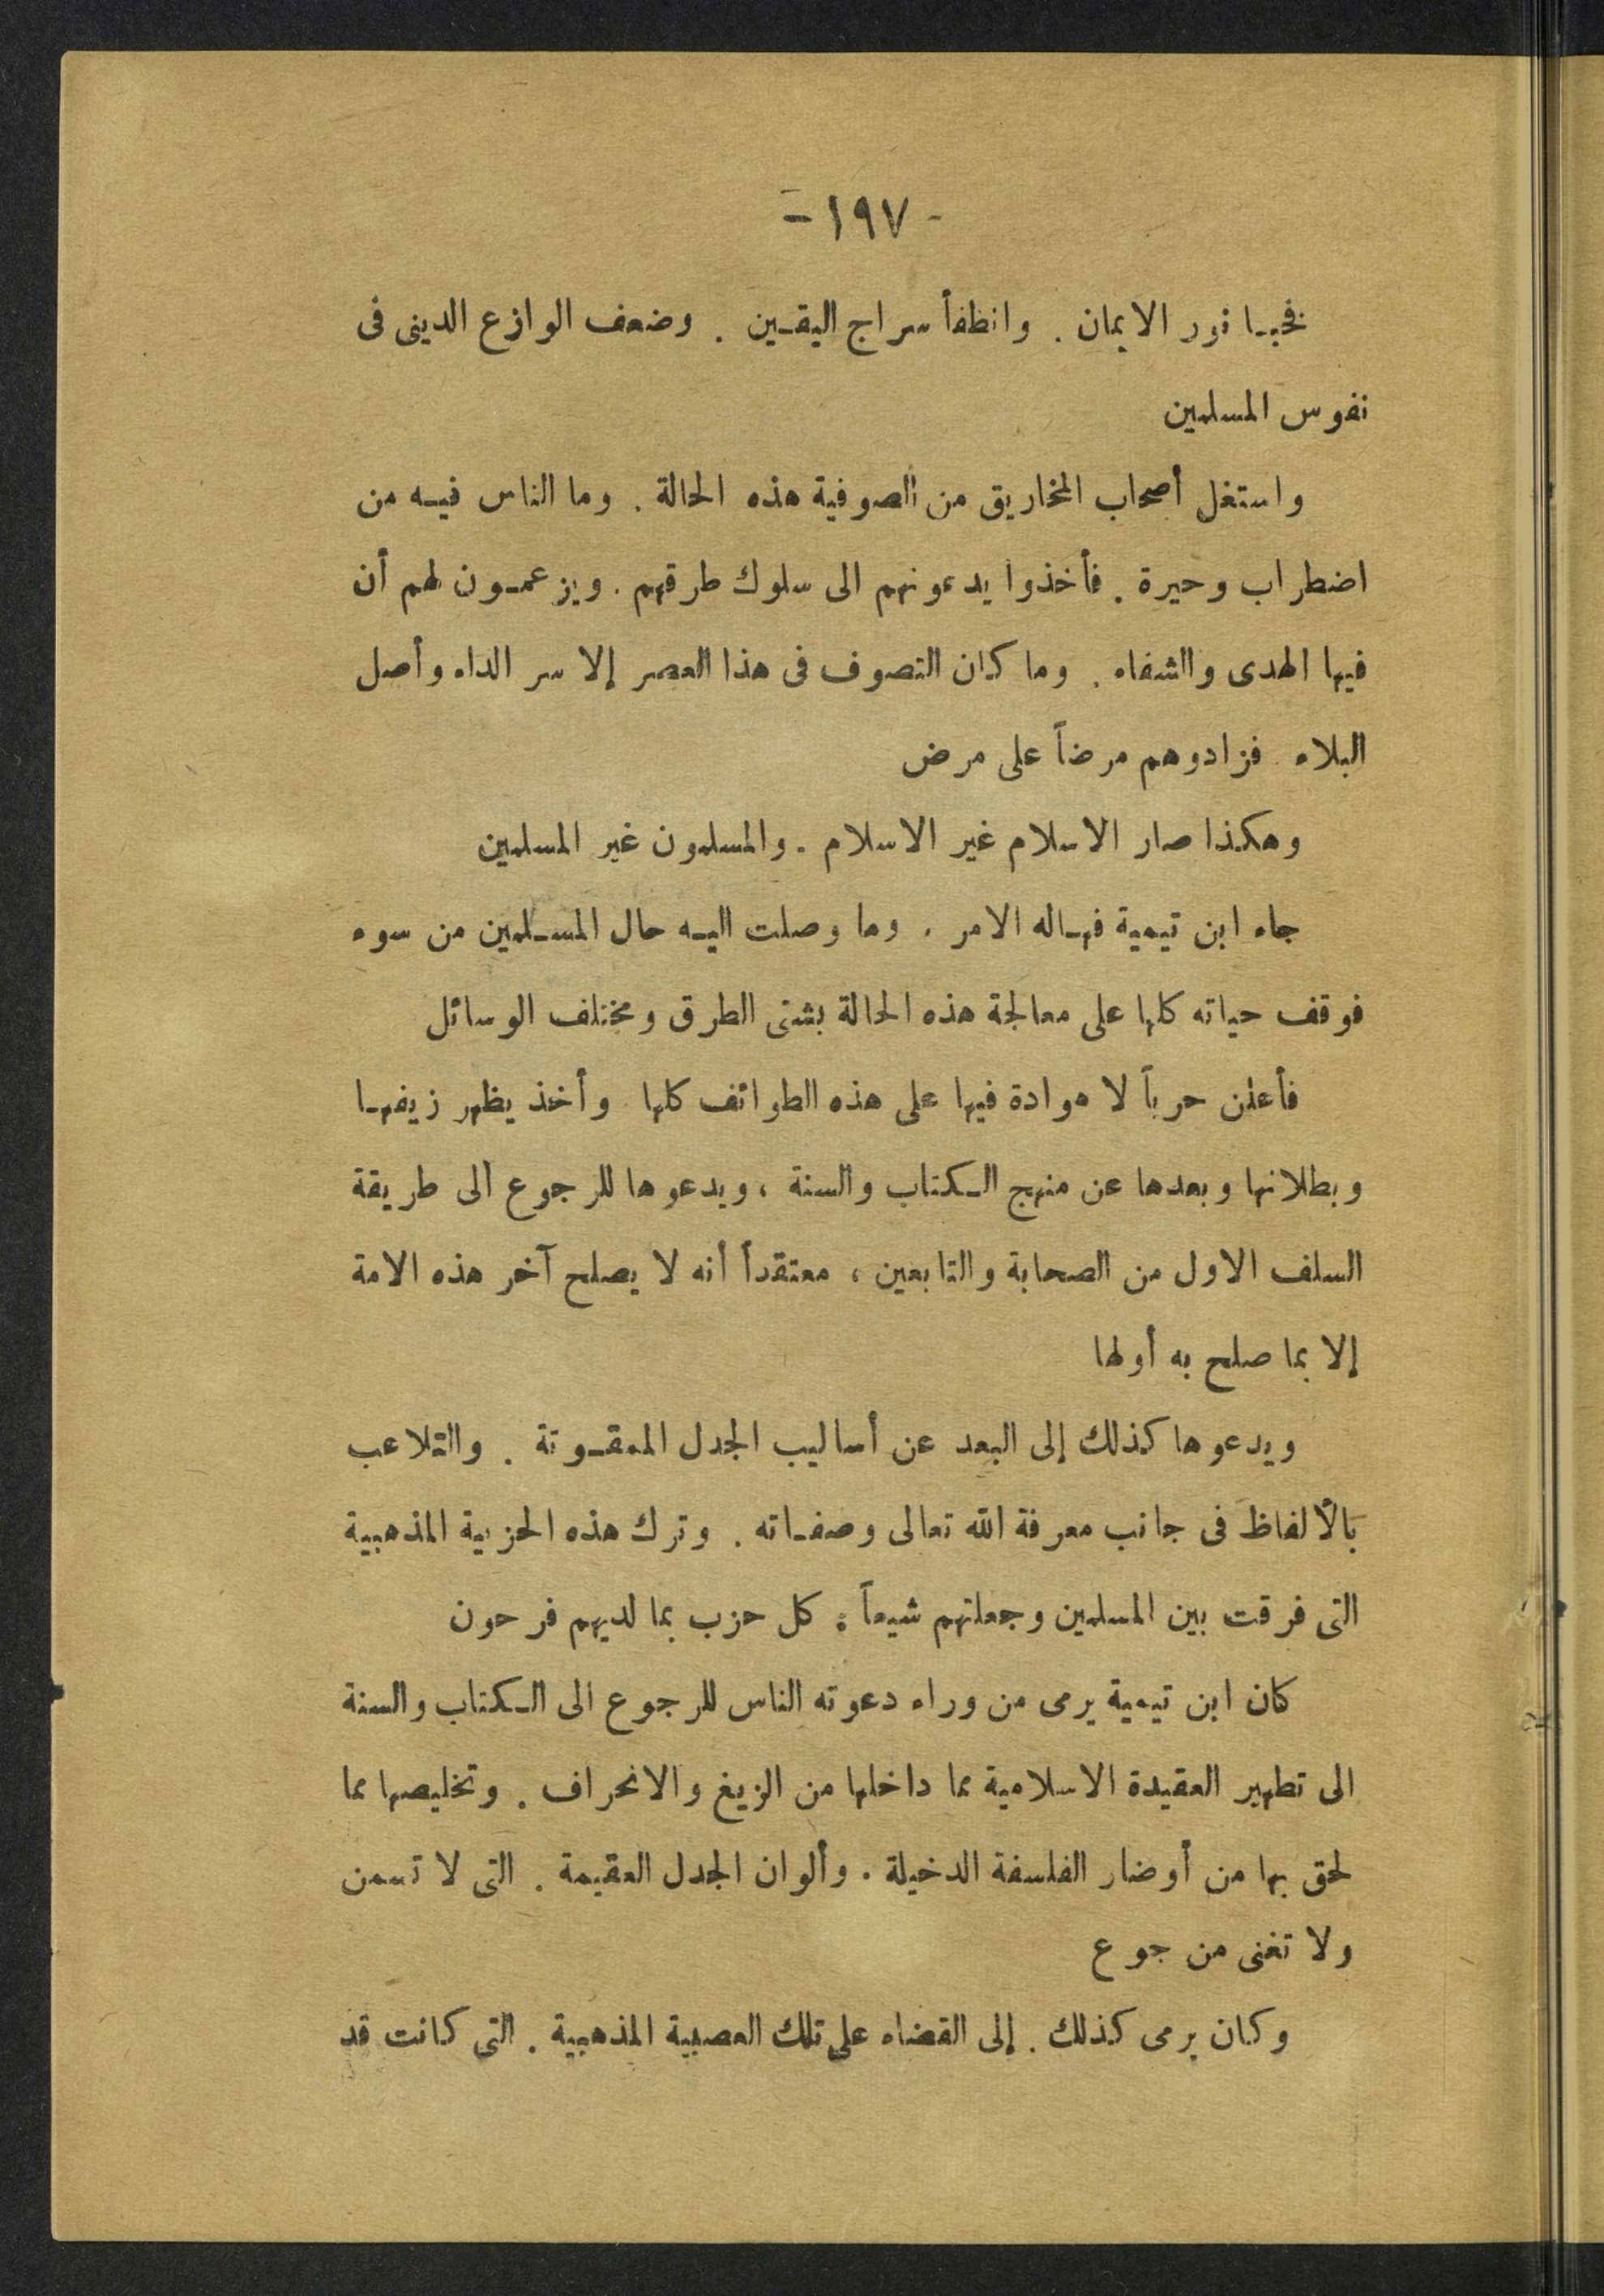 - ١٩٧ -
فخبا نور الايمان . وانطفأ سراج اليقين . وضعف الوازع الدينى فى
نفوس المسلمين
واستغل أصحاب المخاريق من الصوفية هذه الحالة . وما الناس فيه من
اضطراب وحيرة . فأخذوا يدعونهم الى سلوك طرقهم . ويزعمون لهم أن
فيها الهدى والشفاء . وما كان التصوف فى هذا العصر إلا سر الداء وأصل
البلاء . فزادوهم مرضاً على مرض
وهكذا صار الاسلام غير الاسلام . والمسلمون غير المسلمين
جاء ابن تيمية فهاله الامر . وما وصلت اليه حال المسلمين من سوء
فوقف حياته كلها على معالجة هذه الحالة بشتى الطرق ومختلف الوسائل
فأعلن حرباً لا هوادة فيها على هذه الطوائف كلها . وأخذ يظهر زيفها
وبطلانها وبعدها عن منهج الكتاب والسنة ، ويدعوها للرجوع الى طريقة
السلف الاول من الصحابة والتابعين ، معتقداً أنه لا يصلح آخر هذه الامة
إلا بما صلح به أولها
ويدعوها كذلك إلى البعد عن أساليب الجدل الممقوتة . والتلاعب
بالألفاظ فى جانب معرفة الله تعالى وصفاته . وترك هذه الحزبية المذهبية
التى فرقت بين المسلمين وجعلتهم شيعاً . كل حزب بما لديهم فرحون
كان ابن تيمية يرمى من وراء دعوته الناس للرجوع الى الكتاب والسنة
الى تطهير العقيدة الاسلامية مما داخلها من الزيغ والانحراف . وتخليصها مما
لحق بها من أوضار الفلسفة الدخيلة . وألوان الجدل العقيمة . التى لا تسمن
ولا تغنى من جوع
وكان يرمى كذلك . إلى القضاء على تلك العصبية المذهبية . التى كانت قد